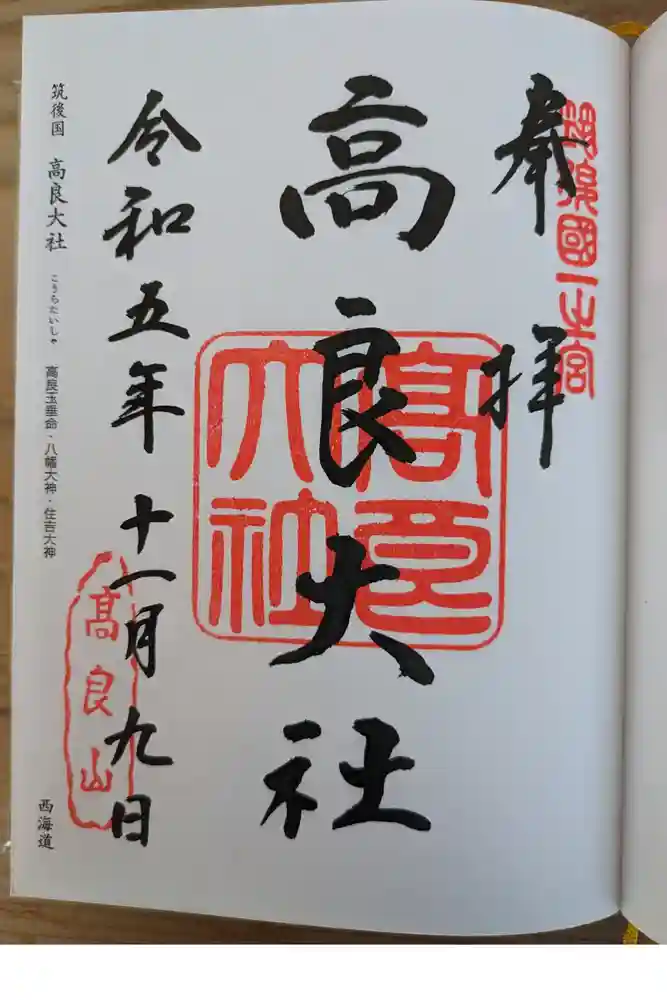 奉拝
筑後國一之宮
高良大社
高良大社
令和五年十一月九日
高良山
筑後国 高良大社 こうらたいしゃ 高良玉垂命・八幡大神・住吉大神
西海道